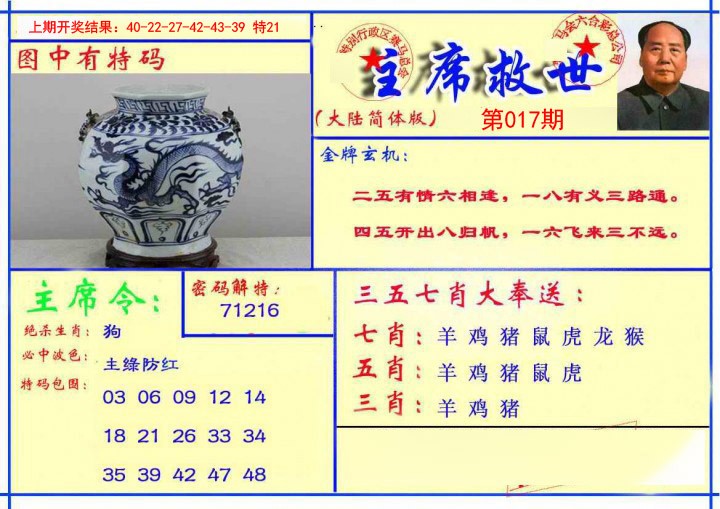 上期开奖结果：40-22-27-42-43-39 特21
图中有特码
特别行政区赛马总会
马会六合彩总公司
主席救世
（大陆简体版）
第017期
金牌玄机：
二五有情六相逢，一八有义三路通。
四五开出八归帆，一六飞来三不远。
主席令：
绝杀生肖：狗
必中波色：主绿防红
特码包围：
03 06 09 12 14
18 21 26 33 34
35 39 42 47 48
密码解特：
71216
三五七肖大奉送：
七肖：羊 鸡 猪 鼠 虎 龙 猴
五肖：羊 鸡 猪 鼠 虎
三肖：羊 鸡 猪